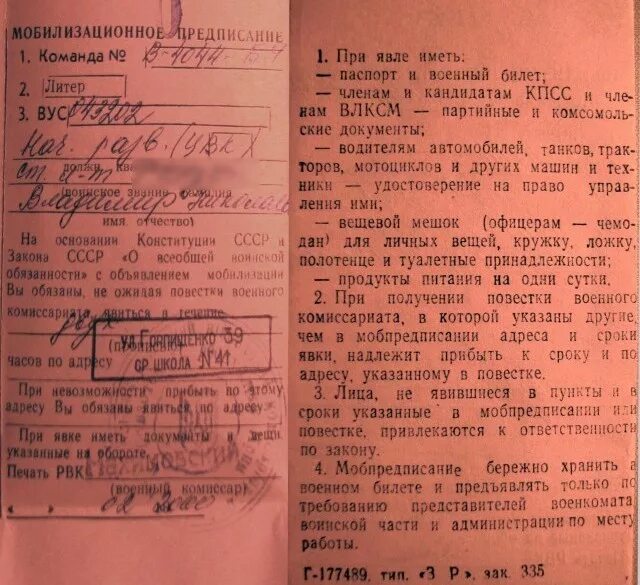 МОБИЛИЗАЦИОННОЕ ПРЕДПИСАНИЕ
1. Команда № В-4044-
2. Литер
3. ВУС 043202
Нач. разв. (УВК)
ст. л-т
(воинское звание фамилия
Владимир Николаев
имя отчество)
На основании Конституции СССР и
Закона СССР «О всеобщей воинской
обязанности» с объявлением мобилизации
Вы обязаны, не ожидая повестки военного
комиссариата явиться в течение
двух
ул Горпищенко 39
ср. школа N 41
часов по адресу
При невозможности прибыть по этому
адресу Вы обязаны явиться по адресу
При явке иметь документы и вещи,
указанные на обороте.
Печать РВК
Нахимовский
(военный комиссар)
1. При явле иметь:
— паспорт и военный билет;
— членам и кандидатам КПСС и чле-
нам ВЛКСМ — партийные и комсомоль-
ские документы;
— водителям автомобилей, танков, трак-
торов, мотоциклов и других машин и тех-
ники — удостоверение на право управ-
ления ими;
— вещевой мешок (офицерам — чемо-
дан) для личных вещей, кружку, ложку,
полотенце и туалетные принадлежности;
— продукты питания на одни сутки.
2. При получении повестки военного
комиссариата, в которой указаны другие,
чем в мобпредписании адреса и сроки
явки, надлежит прибыть к сроку и по
адресу, указанному в повестке.
3. Лица, не явившиеся в пункты и в
сроки указанные в мобпредписании или
повестке, привлекаются к ответственности
по закону.
4. Мобпредписание бережно хранить в
военном билете и предъявлять только по
требованию представителей военкомата
воинской части и администрации по месту
работы.
Г-177489, тип. «З Р», зак. 335